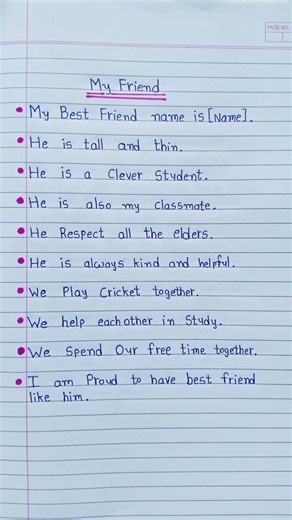 PAGE NO.
My Friend
• My Best Friend name is [Name].
• He is tall and thin.
• He is a Clever Student.
• He is also my classmate.
• He Respect all the elders.
• He is always kind and helpful.
• We Play Cricket together.
• We help each other in Study.
• We Spend Our free time together.
• I am Proud to have best friend
like him.